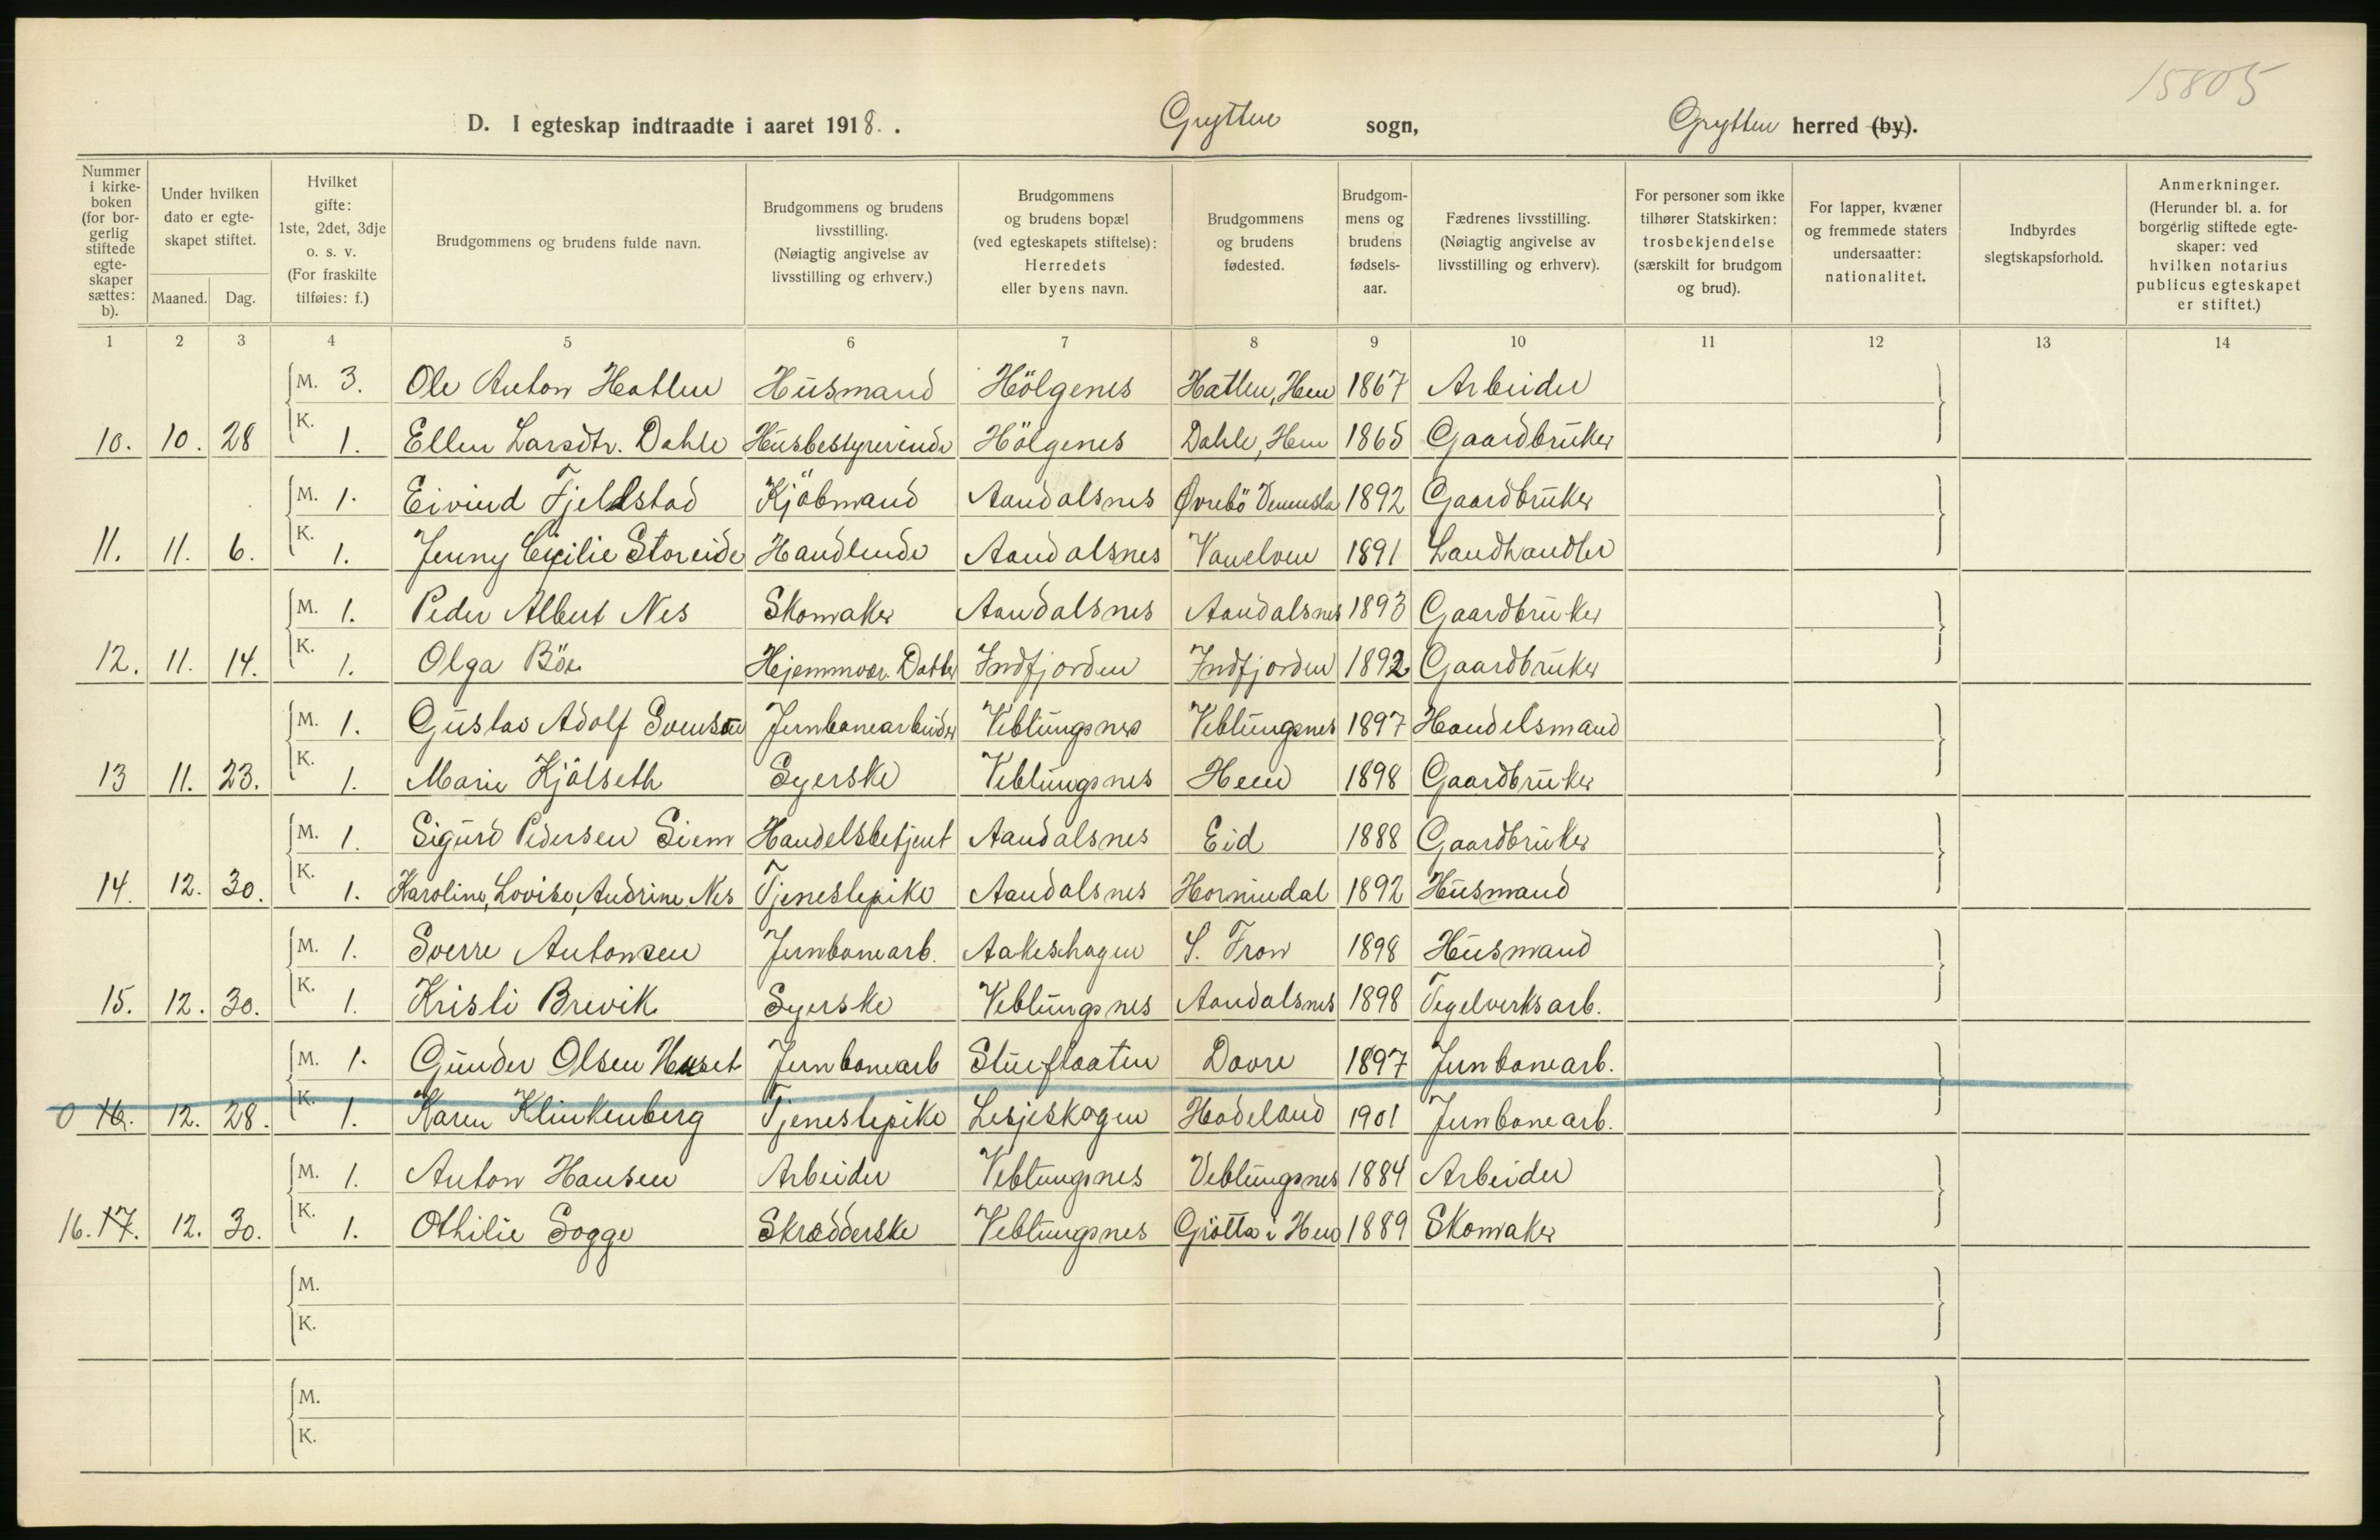 15805
D. I egteskap indtraadte i aaret 1918. . Grytten sogn, Grytten herred (by).
Nummer i kirkeboken (for borgerlig stiftede egteskaper sættes: b).
Under hvilken dato er egteskapet stiftet.
Maaned. Dag.
Hvilket gifte: 1ste, 2det, 3dje o. s. v. (For fraskilte tilføies: f.)
Brudgommens og brudens fulde navn.
Brudgommens og brudens livsstilling. (Nøiagtig angivelse av livsstilling og erhverv.)
Brudgommens og brudens bopæl (ved egteskapets stiftelse): Herredets eller byens navn.
Brudgommens og brudens fødested.
Brudgommens og brudens fødselsaar.
Fædrenes livsstilling. (Nøiagtig angivelse av livsstilling og erhverv).
For personer som ikke tilhører Statskirken: trosbekjendelse (særskilt for brudgom og brud).
For lapper, kvæner og fremmede staters undersaatter: nationalitet.
Indbyrdes slegtskapsforhold.
Anmerkninger. (Herunder bl. a. for borgerlig stiftede egteskaper: ved hvilken notarius publicus egteskapet er stiftet.)
1 2 3 4 5 6 7 8 9 10 11 12 13 14
M. 3. Ole Anton Hatlen Husmand Hölgenes Hatlen, Hen 1867 Arbeider
10. 10. 28 K. 1. Ellen Larsdtr. Dahle Husbestyrerinde Hölgenes Dahle, Hen 1865 Gaardbruker
M. 1. Eivind Fjeldstad Kjöbmand Aandalsnes Øvrebö Vennesla 1892 Gaardbruker
11. 11. 6. K. 1. Jenny Cecilie Storeide Handlende Aandalsnes Vanelven 1891 Landhandler
M. 1. Peder Albert Nes Skomaker Aandalsnes Aandalsnes 1893 Gaardbruker
12. 11. 14. K. 1. Olga Böe Hjemmvær. Datter Indfjorden Indfjorden 1892 Gaardbruker
M. 1. Gustav Adolf Svensen Jernbanearbeider Veblungsnes Veblungsnes 1897 Handelsmand
13 11. 23. K. 1. Marie Kjölseth Syerske Veblungsnes Hen 1898 Gaardbruker
M. 1. Sigurd Pedersen Siem Handelsbetjent Aandalsnes Eid 1888 Gaardbruker
14. 12. 30. K. 1. Karoline, Lovise, Andrine Nes Tjenestepike Aandalsnes Hornindal 1892 Husmand
M. 1. Sverre Antonsen Jernbanearb. Aakeshagen S. Fron 1898 Husmand
15. 12. 30. K. 1. Kristi Brevik Syerske Veblungsnes Aandalsnes 1898 Tegelverksarb.
M. 1. Gunder Olsen Huset Jernbanearb Stueflaaten Dovre 1897 Jernbanearb.
0 16. 12. 28. K. 1. Karen Klinkenberg Tjenestepike Lesjeskogen Hadeland 1901 Jernbanearb.
M. 1. Anton Hansen Arbeider Veblungsnes Veblungsnes 1884 Arbeider
16. 17. 12. 30. K. 1. Othilie Sogge Skrædderske Veblungsnes Grötta i Hen 1889 Skomaker
M.
K.
M.
K.